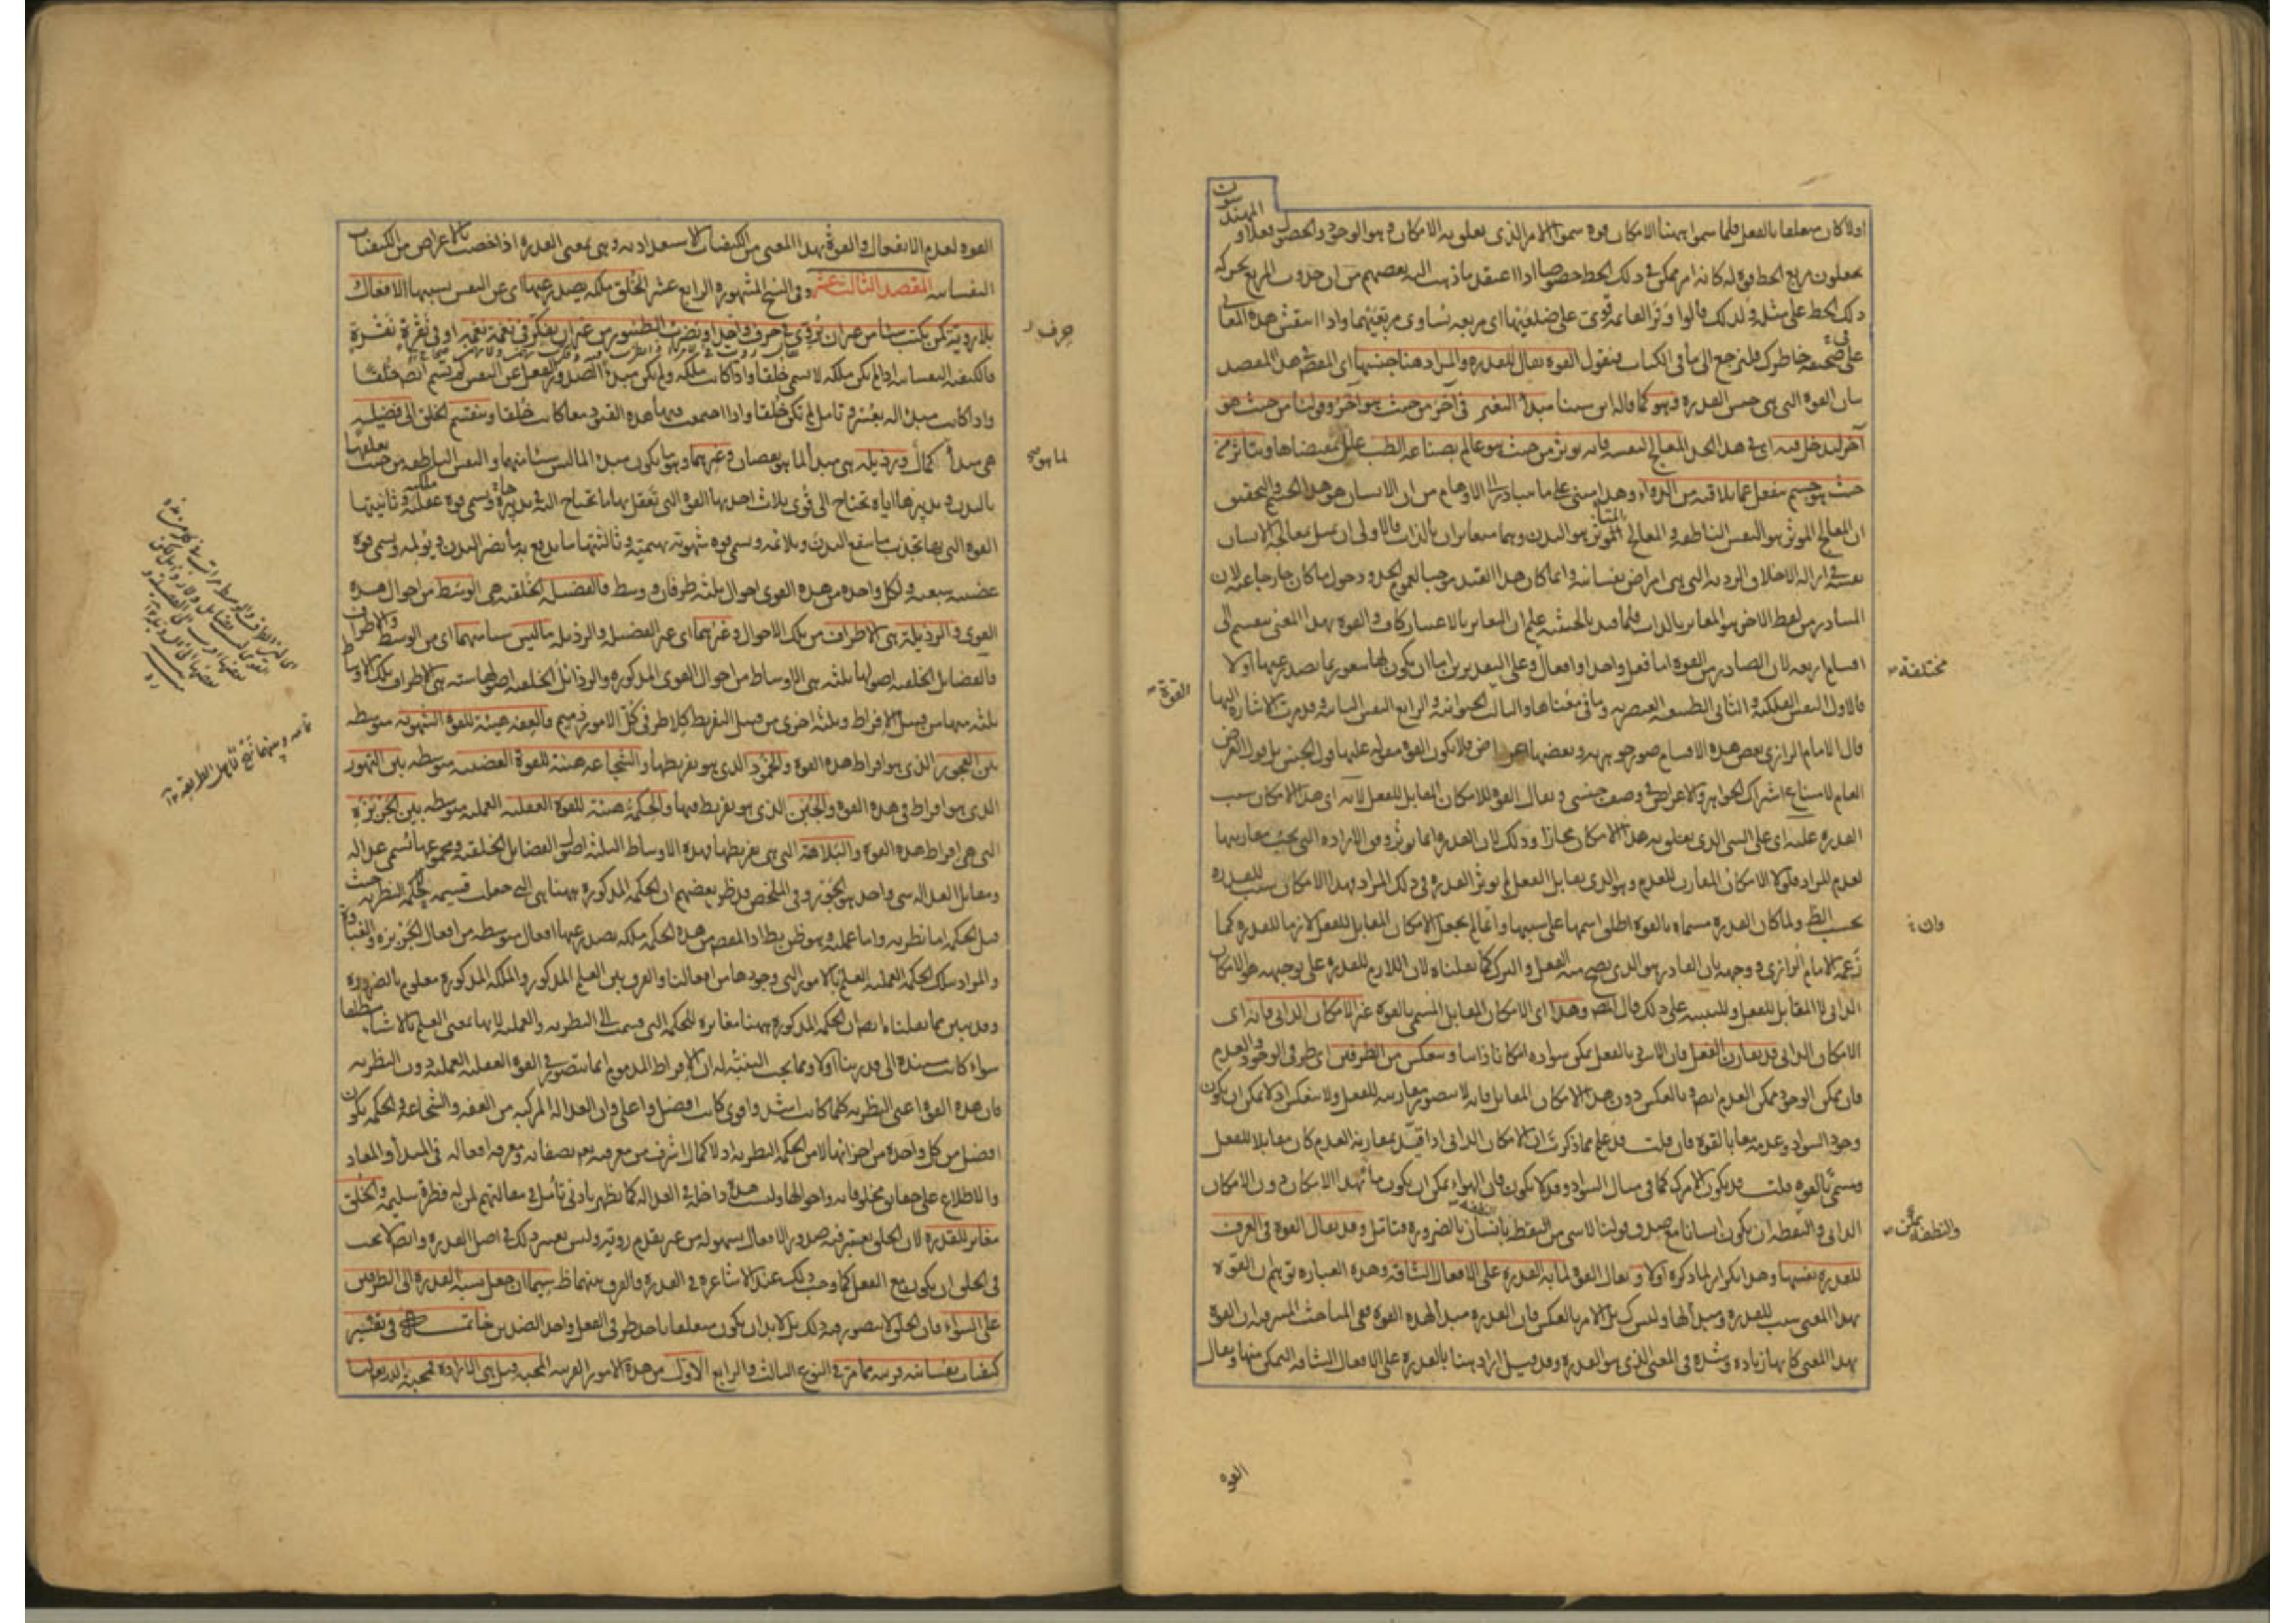 المهندسون
اولا كان متعلقا بالفعل فلما سموا ههنا الامكان قوة سموا الامر الذى يعلق به الامكان وهو الوجود والحصول فعلا و
يجعلون مربع الخط قوة له كانه امر ممكن فى ذلك الخط خصوصا اذا اعتقد ما ذهب اليه بعضهم من ان حدوث المربع بحركة
ذلك الخط على مثله ولذلك قالوا وتر القائمة قوى على ضلعيها اى مربعه يساوى مربعيهما واذا انتقش هذه المعانى
على صحيفة خاطرك فلنرجع الى ما فى الكتاب فنقول القوة تقال للقدرة والمراد هنا جنسها اى المقصود فى هذا المقصد
بيان القوة التى هى جنس القدرة وهو كما قاله ابن سينا مبدأ التغير فى آخر من حيث هو آخر وقولنا من حيث هو
آخر ليدخل فيه اى فى هذا الحد المعالج لنفسه فانه يؤثر من حيث هو عالم بصناعة الطب عامل بمقتضاها ويتاثر من
حيث هو جسم ينفعل عما يلاقيه من الدواء وهذا مبنى على ما يتبادر الى الاوهام من ان الانسان هو هذا الجسم والتحقيق
ان المعالج المؤثر هو النفس الناطقة والمعالج المتأثر هو البدن وهما متغايران بالذات فالاولى ان يمثل بمعالجة الانسان
نفسه فى ازالة الاخلاق الردية التى هى امراض نفسانية وانما كان هذا القيد موجبا لعموم الحد ودخول ما كان خارجا عنه لان
المتبادر من لفظ الآخر هو المغاير بالذات فلما قيد بالحيثية علم ان التغاير بالاعتبار كاف والقوة بهذا المعنى تنقسم الى
اقسام اربعة لان الصادر من القوة اما فعل واحد او افعال وعلى التقديرين اما ان يكون لها شعور بما يصدر عنها او لا
مختلفة
القوة
فالاول النفس الفلكية والثانى الطبيعة العنصرية وما فى معناها والثالث الحيوانية والرابع النفس النباتية وقد مرت الاشارة اليها
قال الامام الرازى بعض هذه الاقسام صور جوهرية وبعضها اعراض فلا يكون القوة مقولة عليها قول الجنس بل قول العرض
العام لامتناع اشتراك الجواهر والاعراض فى وصف جنسى وتقال القوة للامكان المقابل للفعل لانه اى هذا الامكان سبب
القدرة عليه اى على الشئ الذى يعلق به هذا الامكان مجازا وذلك لان القدرة انما تؤثر وفق الارادة التى يجب مقارنتها
لعدم المراد فلولا الامكان المقارن للعدم وهو الذى يقابل الفعل لم يؤثر القدرة فى ذلك المراد فهذا الامكان سبب للقدرة
بحسب الظ ولما كان القدرة مسماة بالقوة اطلق اسمها على سببها وانما لم يجعل الامكان المقابل للفعل لازما للقدرة كما
وان
زعمه الامام الرازى ووجهه بان القادر هو الذى يصح منه الفعل والترك كما نقلناه لان اللازم للقدرة على توجيهه هو الامكان
الذاتى لا المقابل للفعل وللتنبيه على ذلك قال المص وهذا اى الامكان المقابل المسمى بالقوة غير الامكان الذاتى فانه اى
الامكان الذاتى قد يقارن الفعل فان الاسود بالفعل ممكن سواده امكانا ذاتيا وينعكس من الطرفين اى طرفى الوجود والعدم
فان ممكن الوجود ممكن العدم ايض وبالعكس دون هذا الامكان المقابل فانه لا يتصور مقارنته للفعل ولا ينعكس اذ لا يمكن ان يكون
وجود السواد وعدمه معا بالقوة فان قلت قد علم مما ذكرت ان الامكان الذاتى اذا قيد بمقارنة العدم كان مقابلا للفعل
ومسمى بالقوة قلت قد يكون الامر كك كما فى مثال السواد وقد لا يكون فان الهواء يمكن ان يكون ماء بهذا الامكان دون الامكان
والنطفة يمكن
الذاتى والنطفة ان يكون انسانا مع صدق قولنا لا شئ من النطفة بانسان بالضرورة فتامل وقد يقال القوة فى العرف
للقدرة نفسها وهذا تكرار لما ذكره اولا ويقال القوة لما به القدرة على الافعال الشاقة وهذه العبارة توهم ان القوة
بهذا المعنى سبب للقدرة ومبدأ لها وليس كك بل الامر بالعكس فان القدرة مبدأ لهذه القوة ففى المباحث المشرقية ان القوة
بهذا المعنى كانها زيادة وشدة فى المعنى الذى هو القدرة وقد قيل اراد ههنا بالقدرة على الافعال الشاقة التمكن منها ويقال
القوة
القوة لعدم الانفعال والقوة بهذا المعنى من الكيفيات الاستعدادية وهى بمعنى القدرة اذا خصت بالاعراض من الكيفيات
النفسانية المقصد الثالث عشر وفى النسخ المشهورة الرابع عشر الخلق ملكة يصدر عنها اى عن النفس بسببها الافعال
بلا روية كمن يكتب شيئا من غير ان يروى فى حرف حرف او يضرب الطنبور من غير ان يفكر فى نغمة نغمة او فى نقرة نقرة
حرف
فالكيفية النفسانية اذا لم تكن ملكة لا تسمى خلقا واذا كانت ملكة ولم تكن مبدأ لصدور الفعل عن النفس لم تسم ايض خلقا
واذا كانت مبدأ له بعسر وتامل لم تكن خلقا واذا اجتمعت فيها هذه القيود معا كانت خلقا وينقسم الخلق الى فضيلة
هى مبدأ لما هو كمال ورذيلة هى مبدأ لما هو نقصان وغيرهما وهو ما يكون مبدأ لما ليس شيئا منهما والنفس الناطقة من حيث تعلقها
لما هو
بالبدن وتدبيرها اياه تحتاج الى قوى ثلاث احديها القوة التى تعقل بها ما تحتاج اليه فى تدبيره وتسمى قوة عقلية وثانيتها
القوة التى بها تجذب ما ينفع البدن ويلائمه وتسمى قوة شهوية بهيمية وثالثتها ما يدفع به ما يضر البدن ويؤلمه ويسمى قوة
غضبية سبعية ولكل واحدة من هذه القوى احوال ثلثة طرفان ووسط فالفضيلة الخلقية هى الوسط من احوال هذه
القوى والرذيلة هى الاطراف من تلك الاحوال وغيرهما اى غير الفضيلة والرذيلة ما ليس شيئا منهما اى من الوسط والاطراف
فالفضائل الخلقية اصولها ثلثة هى الاوساط من احوال القوى المذكورة والرذائل الخلقية اصولها ستة هى الاطراف تلك الاوساط
ثلثة منها من قبيل الافراط وثلثة اخرى من قبيل التفريط كلا طرفى كل الامور ذميم فالعفة هيئة للقوة الشهوية متوسطة
بين الفجور الذى هو افراط هذه القوة والخمود الذى هو تفريطها والشجاعة هيئة للقوة الغضبية متوسطة بين التهور
الذى هو افراط فى هذه القوة والجبن الذى هو تفريط فيها والحكمة هيئة للقوة العقلية العملية متوسطة بين الجربزة
التى هى افراط هذه القوة والبلاهة التى هى تفريطها فهذه الاوساط الثلثة اصول الفضائل الخلقية ومجموعها تسمى عدالة
ومقابل العدالة شئ واحد هو الجور وفى الملخص قد ظن بعضهم ان الحكمة المذكورة ههنا هى التى جعلت قسيمة للحكمة النظرية حيث
قيل الحكمة اما نظرية واما عملية وهو ظن بط اذ المقص من هذه الحكمة ملكة يصدر عنها افعال متوسطة من افعال الجربزة والغباوة
والمراد بتلك الحكمة العملية العلم بالامور التى وجودها من افعالنا والفرق بين العلم المذكور والملكة المذكورة معلوم بالضرورة
وقد تبين مما نقلناه ايض ان الحكمة المذكورة ههنا مغايرة للحكمة التى قسمت الى النظرية والعملية لانها بمعنى العلم بالاشياء مطلقا
سواء كانت مستندة الى قدرتنا اولا ومما يجب التنبه له ان الافراط المذموم انما يتصور فى القوة العقلية العملية دون النظرية
فان هذه القوة اعنى النظرية كلما كانت اشد واقوى كانت افضل واعلى وان العدالة المركبة من العفة والشجاعة والحكمة تكون
افضل من كل واحدة من اجزائها لا من الحكمة النظرية اذ لا كمال اشرف من معرفته تعالى بصفاته ومعرفة افعاله فى المبدأ والمعاد
والاطلاع على حقايق مخلوقاته واحوالها وليست هذه داخلة فى العدالة كما يظهر بادنى تأمل فى مقالتهم لمن له فطرة سليمة والخلق
مغاير للقدرة لان الخلق يعتبر فيه صدور الافعال بسهولة من غير تقدم روية وليس يعتبر ذلك فى اصل القدرة وايض لا يجب
فى الخلق ان يكون مع الفعل كما وجب ذلك عند الاشاعرة فى القدرة والفرق بينهما ظ سيما ان جعل نسبة القدرة الى الطرفين
على السواء فان الخلق لا يتصور فيه ذلك بل لا بد ان يكون متعلقا باحد طرفى الفعل واحد الضدين خاتمة فى تفسير
كيفيات نفسانية قريبة مما مر فى النوع الثالث والرابع الاول من هذه الامور القريبة المحبة قيل هى الارادة فمحبة الله تعالى لنا